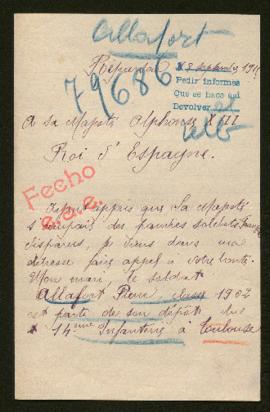 Allafort
79686
Pedir informes
Que se haga así
Devolver
A sa Majesté Alphonse XIII
Roi d'Espagne.
Fecho
Ayant appris que Sa Majesté
s'occupait des pauvres soldats français
disparus, je viens dans ma
détresse faire appel à votre bonté.
Mon mari, le soldat
Allafort Pierre, classe 1902
est parti de son dépôt du
14ème Infanterie à Toulouse